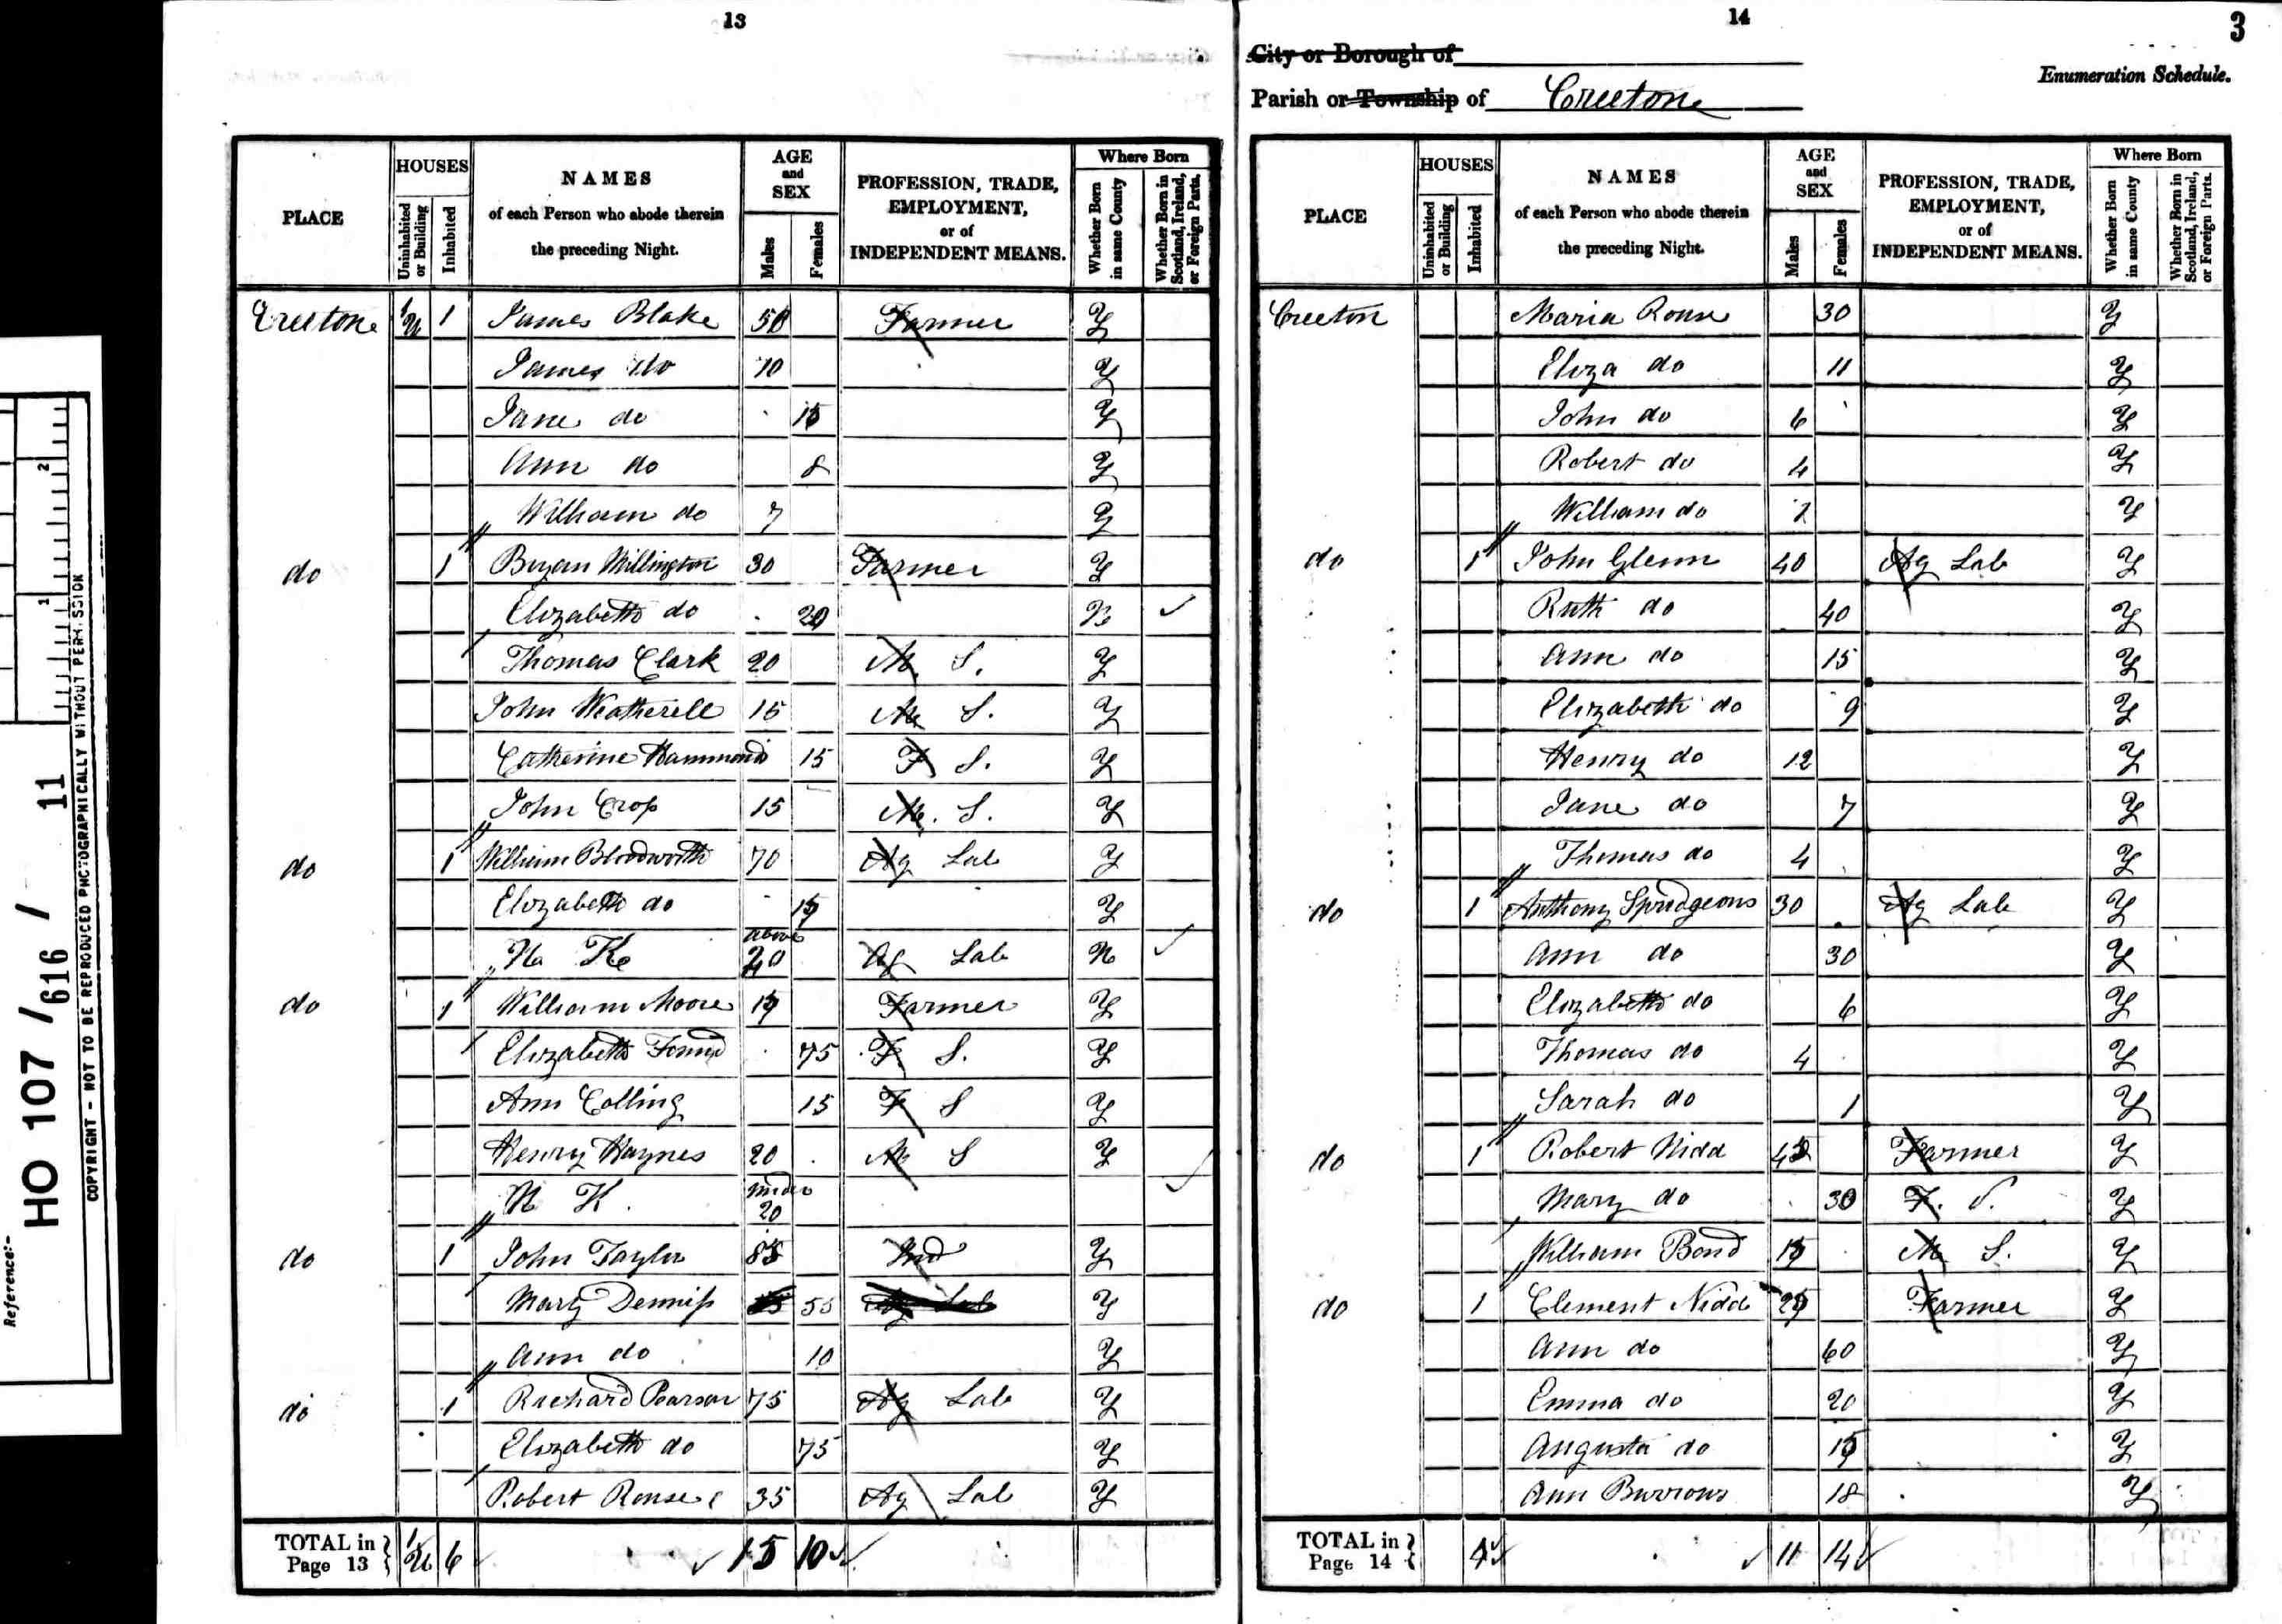 13
PLACE
HOUSES
Uninhabited or Building
Inhabited
NAMES
of each Person who abode therein
the preceding Night.
AGE
and
SEX
Males
Females
PROFESSION, TRADE,
EMPLOYMENT,
or of
INDEPENDENT MEANS.
Where Born
Whether Born in same County
Whether Born in Scotland, Ireland, or Foreign Parts.
Creeton 1 U 1 James Blake 50 Farmer Y
James do 10 Y
Jane do 15 Y
Ann do 8 Y
William do 7 Y
do 1 Bryan Millington 30 Farmer Y
Elizabeth do 20 N
Thomas Clark 20 M. S. Y
John Weatherell 15 M S. Y
Catherine Hammond 15 F S. Y
John Crop 15 M. S. Y
do 1 William Bloodworth 70 Ag Lab Y
Elizabeth do Y
N K above 20 Ag Lab N
do 1 William Moore Farmer Y
Elizabeth 75 F. S. Y
Ann Colling 15 F S Y
Henry Haynes 20 M S Y
N K. under 20
do 1 John Taylor 85 Ind Y
Mary Dennis 55 Ag Lab Y
Ann do 10 Y
do 1 Richard Pearson 75 Ag Lab Y
Elizabeth do 75 Y
Robert Rouse 35 Ag Lab Y
TOTAL in Page 13 1 U 6 15 10
14
3
City or Borough of
Enumeration Schedule.
Parish or Township of Creeton
PLACE
HOUSES
Uninhabited or Building
Inhabited
NAMES
of each Person who abode therein
the preceding Night.
AGE
and
SEX
Males
Females
PROFESSION, TRADE,
EMPLOYMENT,
or of
INDEPENDENT MEANS.
Where Born
Whether Born in same County
Whether Born in Scotland, Ireland, or Foreign Parts.
Creeton Maria Rouse 30 Y
Eliza do 11 Y
John do 6 Y
Robert do 4 Y
William do Y
do 1 John Glenn 40 Ag Lab Y
Ruth do 40 Y
Ann do 15 Y
Elizabeth do 9 Y
Henry do 12 Y
Jane do 7 Y
Thomas do 4 Y
do 1 Anthony Spudgeons 30 Ag Lab Y
Ann do 30 Y
Elizabeth do 6 Y
Thomas do 4 Y
Sarah do 1 Y
do 1 Robert Nidd Farmer Y
Mary do 30 F. S. Y
William Bond 15 M S. Y
do 1 Clement Nidd 25 Farmer Y
Ann do 60 Y
Emma do 20 Y
Augusta do 15 Y
Ann Burrows 18 Y
TOTAL in Page 14 4 11 14
2
1
Reference:-
HO 107 / 616 / 11
COPYRIGHT - NOT TO BE REPRODUCED PHOTOGRAPHICALLY WITHOUT PERMISSION